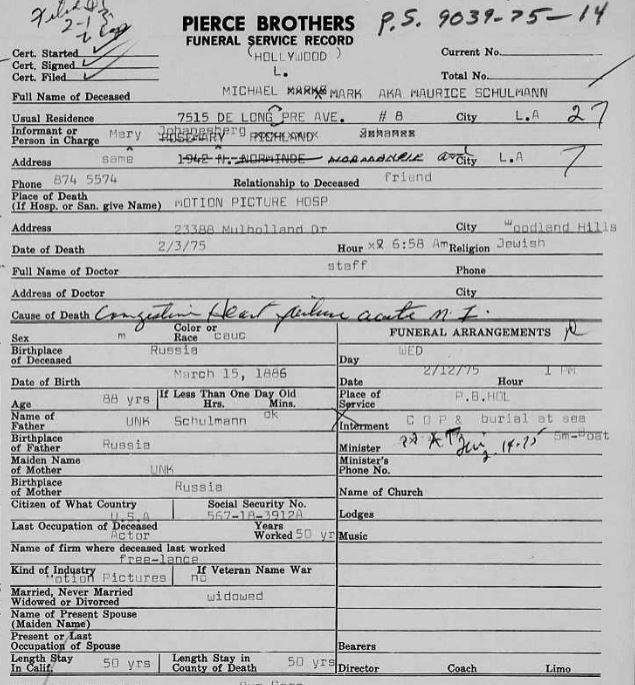 Filed
2-1
PIERCE BROTHERS
FUNERAL SERVICE RECORD
(HOLLYWOOD)
P.S. 9039-75-14
Cert. Started
Cert. Signed
Cert. Filed
Current No.
Total No.
L.
Full Name of Deceased MICHAEL MARK AKA MAURICE SCHULMANN
Usual Residence 7515 DE LONG PRE AVE. # 8 City L.A 27
Informant or Person in Charge Mary Johanesberg ROSEMARY RICHLAND
Address same 1942 N. NORMINDE City L.A 7
Phone 874 5574 Relationship to Deceased friend
Place of Death (If Hosp. or San. give Name) MOTION PICTURE HOSP
Address 23388 Mulholland Dr City Woodland Hills
Date of Death 2/3/75 Hour 6:58 Am Religion Jewish
Full Name of Doctor staff Phone
Address of Doctor City
Cause of Death Congestive Heart failure acute M.I.
Sex m Color or Race cauc
Birthplace of Deceased Russia
Date of Birth March 15, 1886
Age 88 yrs If Less Than One Day Old Hrs. Mins.
Name of Father UNK Schulmann ok
Birthplace of Father Russia
Maiden Name of Mother UNK
Birthplace of Mother Russia
Citizen of What Country U.S.A Social Security No. 567-18-3912A
Last Occupation of Deceased Actor Years Worked 50 yr
Name of firm where deceased last worked free-lance
Kind of Industry Motion Pictures If Veteran Name War no
Married, Never Married Widowed or Divorced widowed
Name of Present Spouse (Maiden Name)
Present or Last Occupation of Spouse
Length Stay In Calif. 50 yrs Length Stay in County of Death 50 yrs
FUNERAL ARRANGEMENTS
Day WED
Date 2/12/75 Hour 1 PM
Place of Service P.B.HOL
Interment C O P & burial at sea
Minister 5m-Boat
Minister's Phone No.
Name of Church
Lodges
Music
Bearers
Director Coach Limo